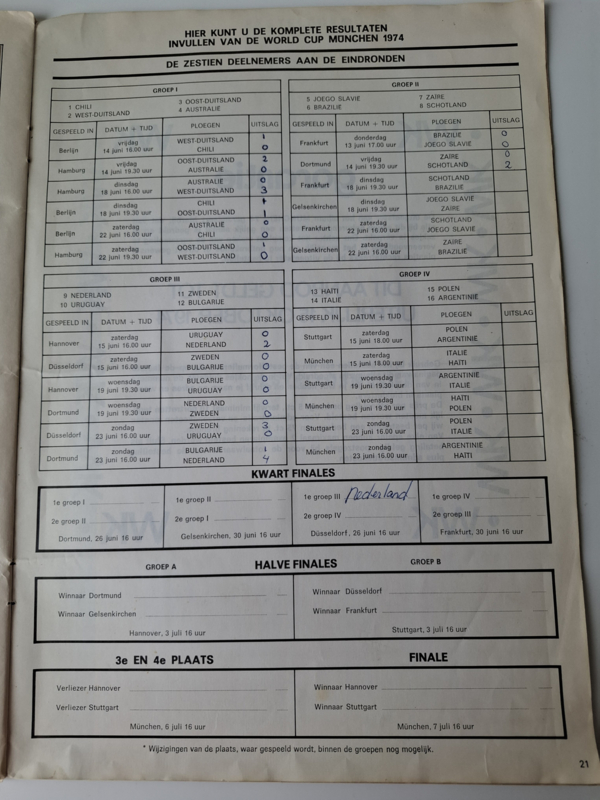 HIER KUNT U DE KOMPLETE RESULTATEN
INVULLEN VAN DE WORLD CUP MÜNCHEN 1974
DE ZESTIEN DEELNEMERS AAN DE EINDRONDEN
GROEP I
1 CHILI 3 OOST-DUITSLAND
2 WEST-DUITSLAND 4 AUSTRALIË
GESPEELD IN DATUM + TIJD PLOEGEN UITSLAG
Berlijn vrijdag 14 juni 16.00 uur WEST-DUITSLAND 1
CHILI 0
Hamburg vrijdag 14 juni 19.30 uur OOST-DUITSLAND 2
AUSTRALIË 0
Hamburg dinsdag 18 juni 16.00 uur AUSTRALIË 0
WEST-DUITSLAND 3
Berlijn dinsdag 18 juni 19.30 uur CHILI 1
OOST-DUITSLAND 1
Berlijn zaterdag 22 juni 16.00 uur AUSTRALIË 0
CHILI 0
Hamburg zaterdag 22 juni 19.30 uur OOST-DUITSLAND 1
WEST-DUITSLAND 0
GROEP II
5 JOEGO SLAVIË 7 ZAÏRE
6 BRAZILIË 8 SCHOTLAND
GESPEELD IN DATUM + TIJD PLOEGEN UITSLAG
Frankfurt donderdag 13 juni 17.00 uur BRAZILIË 0
JOEGO SLAVIË 0
Dortmund vrijdag 14 juni 19.30 uur ZAÏRE 0
SCHOTLAND 2
Frankfurt dinsdag 18 juni 19.30 uur SCHOTLAND
BRAZILIË
Gelsenkirchen dinsdag 18 juni 19.30 uur JOEGO SLAVIË
ZAÏRE
Frankfurt zaterdag 22 juni 16.00 uur SCHOTLAND
JOEGO SLAVIË
Gelsenkirchen zaterdag 22 juni 16.00 uur ZAÏRE
BRAZILIË
GROEP III
9 NEDERLAND 11 ZWEDEN
10 URUGUAY 12 BULGARIJE
GESPEELD IN DATUM + TIJD PLOEGEN UITSLAG
Hannover zaterdag 15 juni 16.00 uur URUGUAY 0
NEDERLAND 2
Düsseldorf zaterdag 15 juni 16.00 uur ZWEDEN 0
BULGARIJE 0
Hannover woensdag 19 juni 19.30 uur BULGARIJE 0
URUGUAY 0
Dortmund woensdag 19 juni 19.30 uur NEDERLAND 0
ZWEDEN 0
Düsseldorf zondag 23 juni 16.00 uur ZWEDEN 3
URUGUAY 0
Dortmund zondag 23 juni 16.00 uur BULGARIJE 1
NEDERLAND 4
GROEP IV
13 HAÏTI 15 POLEN
14 ITALIË 16 ARGENTINIË
GESPEELD IN DATUM + TIJD PLOEGEN UITSLAG
Stuttgart zaterdag 15 juni 18.00 uur POLEN
ARGENTINIË
München zaterdag 15 juni 18.00 uur ITALIË
HAÏTI
Stuttgart woensdag 19 juni 19.30 uur ARGENTINIË
ITALIË
München woensdag 19 juni 19.30 uur HAÏTI
POLEN
Stuttgart zondag 23 juni 16.00 uur POLEN
ITALIË
München zondag 23 juni 16.00 uur ARGENTINIË
HAÏTI
KWART FINALES
1e groep I
2e groep II
Dortmund, 26 juni 16 uur
1e groep II
2e groep I
Gelsenkirchen, 30 juni 16 uur
1e groep III Nederland
2e groep IV
Düsseldorf, 26 juni 16 uur
1e groep IV
2e groep III
Frankfurt, 30 juni 16 uur
HALVE FINALES
GROEP A
Winnaar Dortmund
Winnaar Gelsenkirchen
Hannover, 3 juli 16 uur
GROEP B
Winnaar Düsseldorf
Winnaar Frankfurt
Stuttgart, 3 juli 16 uur
3e EN 4e PLAATS
Verliezer Hannover
Verliezer Stuttgart
München, 6 juli 16 uur
FINALE
Winnaar Hannover
Winnaar Stuttgart
München, 7 juli 16 uur
* Wijzigingen van de plaats, waar gespeeld wordt, binnen de groepen nog mogelijk.
21